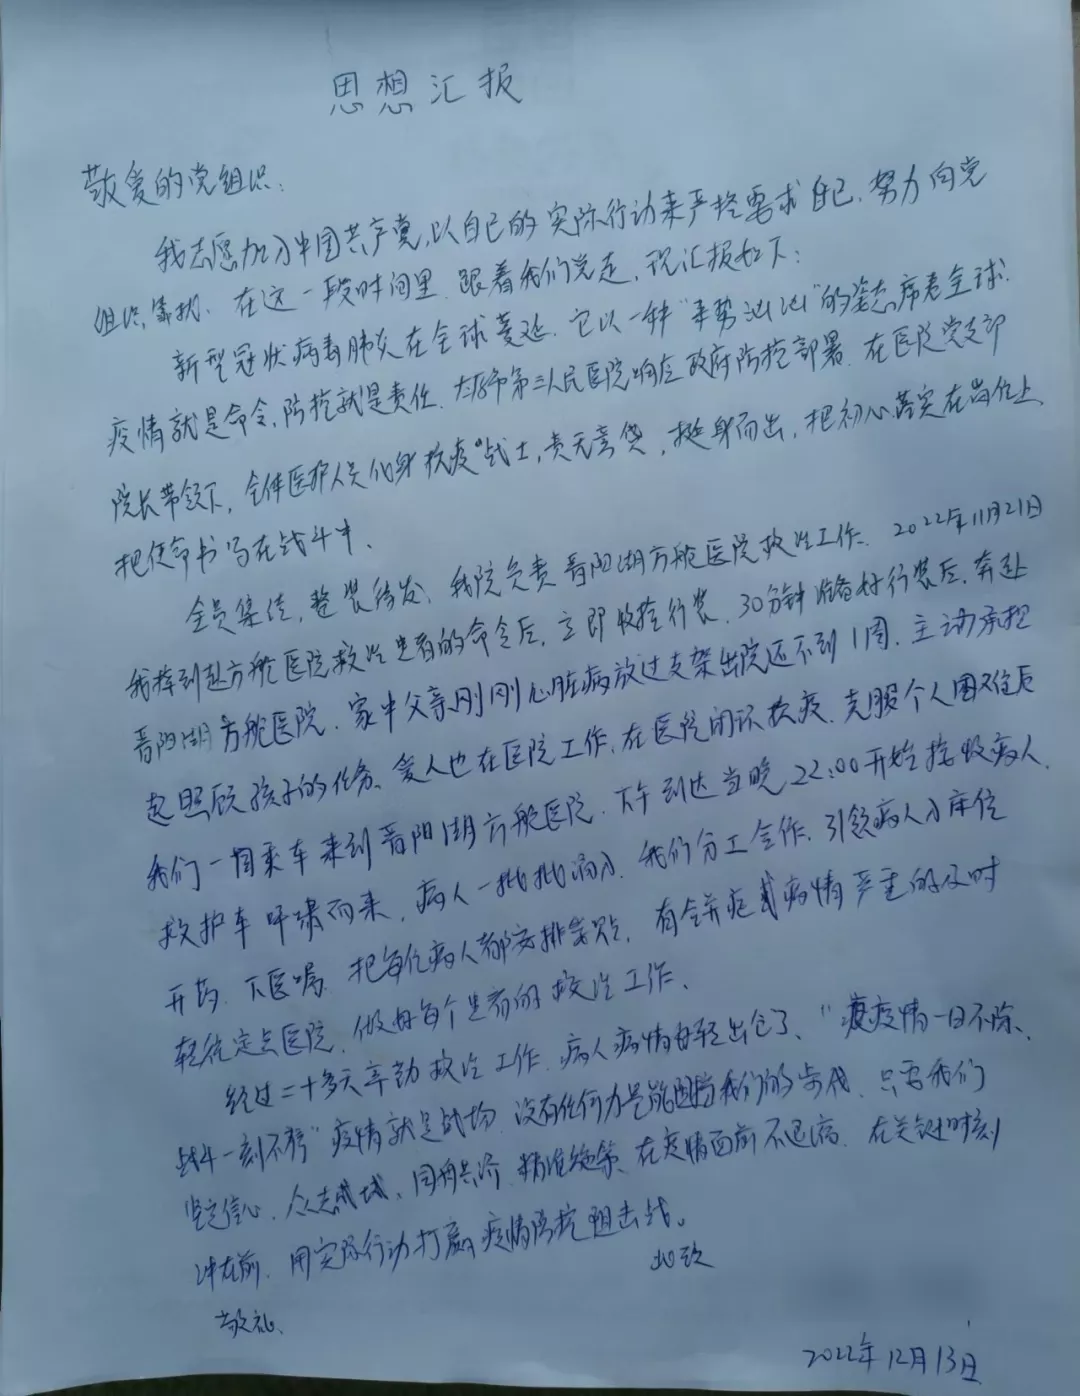 思想汇报
敬爱的党组织：
我志愿加入中国共产党，以自己的实际行动来严格要求自己，努力向党
组织靠拢、在这一段时间里，跟着我们党走，现汇报如下：
新型冠状病毒肺炎在全球蔓延，它以一种"来势汹汹"的姿态席卷全球.
疫情就是命令，防控就是责任、太原市第三人民医院响应政府防控部署、在医院党支部
院长带领下，全体医护人员化身抗疫"战士，责无旁贷，挺身而出，把初心落实在岗位上
把使命书写在战斗中、
全员集结，整装待发、我院负责晋阳湖方舱医院救治工作、2022年11月21日
我接到赴方舱医院救治患者的命令后，立即收拾行装、30分钟准备好行装后，奔赴
晋阳湖方舱医院、家中父亲刚刚心脏病放过支架出院还不到1周，主动承担
起照顾孩子的任务、爱人也在医院工作，在医院闭环抗疫、克服个人困难后
我们一同乘车来到晋阳湖方舱医院、下午到达当晚22:00开始接收病人、
救护车呼啸而来，病人一批批涌入、我们分工合作，引领病人入床位
开药、下医嘱、把每位病人都安排妥帖、有合并症或病情严重的及时
转往定点医院、做好每个患者的救治工作、
经过二十多天辛勤救治工作、病人病情好转出仓了、"疫情一日不除、
战斗一刻不停"疫情就是战场、没有任何力量能阻挡我们的步伐、只要我们
坚定信心、众志成城、同舟共济、精准施策、在疫情面前不退缩、在关键时刻
冲在前、用实际行动打赢疫情防控阻击战。
此致
敬礼、
2022年12月13日